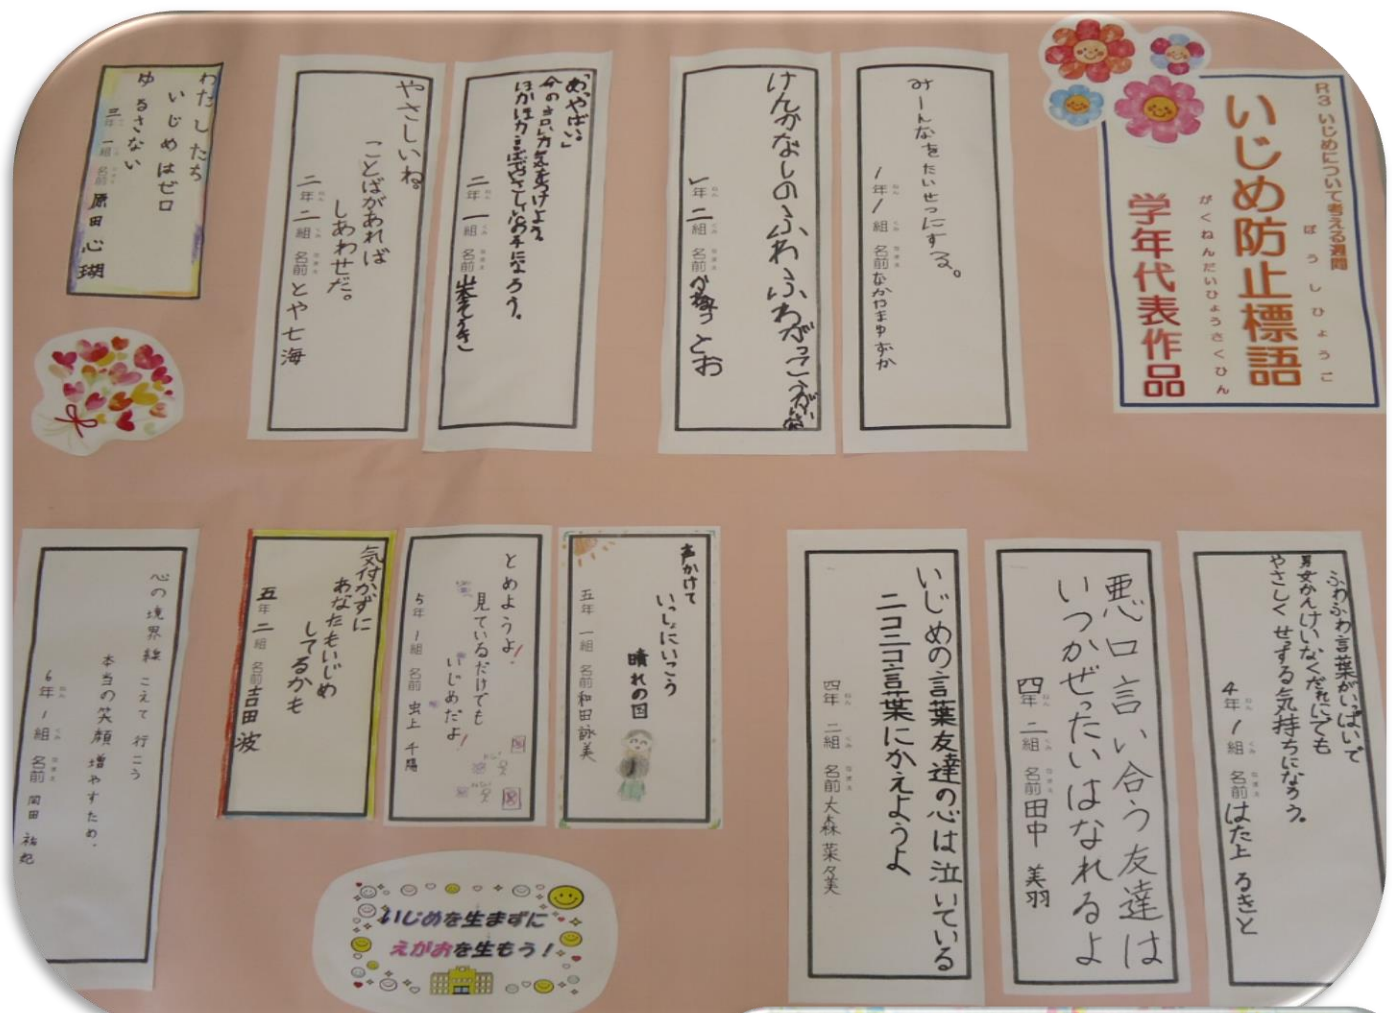 R3 いじめについて考える週間
いじめ防止標語
ぼうしひょうご
学年代表作品
がくねんだいひょうさくひん
みーんなをたいせつにする。
1年1組 名前 なかやまゆずか
けんかなしのふわふわがっこうがいいな
1年二組 名前 とお
「あ、やばい。」
今の言い方気をつけよう
ほかほか言葉でやさしい心の子になろう。
二年一組 名前
やさしいね。
ことばがあれば
しあわせだ。
二年二組 名前 とや七海
わたしたち
いじめはゼロ
ゆるさない
三年一組 名前 原田心瑚
ふわふわ言葉がいっぱいで
男女かんけいなくだれにでも
やさしくせっする気持ちになろう。
4年1組 名前 はた上るきと
悪口言い合う友達は
いつかぜったいはなれるよ
四年二組 名前 田中美羽
いじめの言葉友達の心は泣いている
ニコニコ言葉にかえようよ
四年二組 名前 大森菜々美
声かけて
いっしょにいこう
晴れの国
五年一組 名前 和田詠美
とめようよ!
見ているだけでも
いじめだよ!
5年1組 名前 虫上千陽
気付かずに
あなたもいじめ
してるかも
五年二組 名前 吉田波
心の境界線 こえて行こう
本当の笑顔増やすため、
6年1組 名前 岡田祐妃
いじめを生まずに
えがおを生もう!